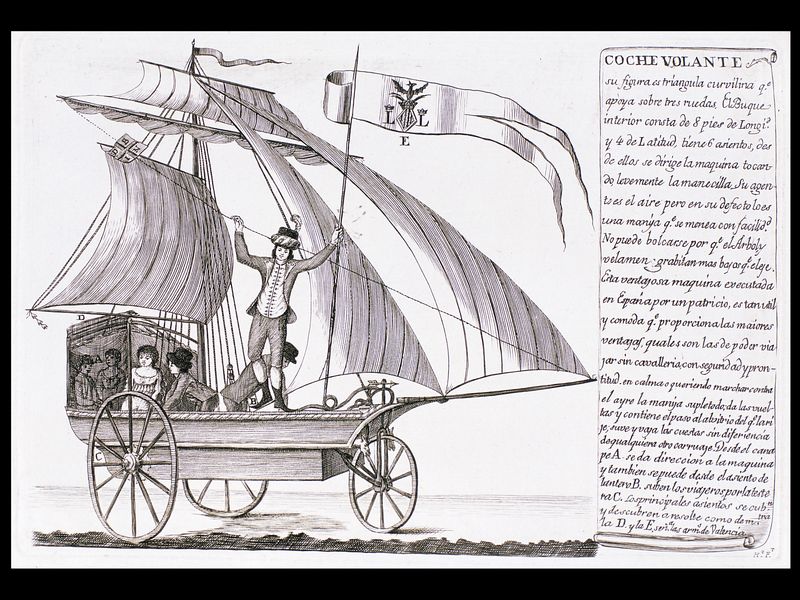 L L
E
D
C
COCHE VOLANTE
su figura es triangula curvilina q.e
apoya sobre tres ruedas. El Buque
interior consta de 8 pies de Longi.d
y 4 de Latitud, tiene 6 asientos, des
de ellos se dirige la maquina tocan-
do levemente la manecilla. Su agen-
te es el aire pero en su defecto lo es
una manija q.e se menea con facilid.d
No puede bolcarse por q.e el Arbol y
velamen grabitan mas bajos q.e el eje.
Esta ventajosa maquina executada
en España por un patricio, es tan util
y comoda q.e proporciona las maiores
ventajas, quales son las de poder via
jar sin cavalleria, con seguridad y pron-
titud, en calma o queriendo marchar contra
el ayre la manija supletodo; da las vuel-
tas y contiene el paso al abitrio del q.e lari
je, suve y vaja las cuestas sin diferiencia
de qualquiera otro carruaje. Desde el cana
pe A. se da direccion a la maquina
y tambien se puede desde el asiento de
lantero B. suben los viajeros por la teste
ra C. Los principales asientos se cub.n
y descubren a resolte como demu.tra
la D. y la E. señ. las arm.s de Valencia